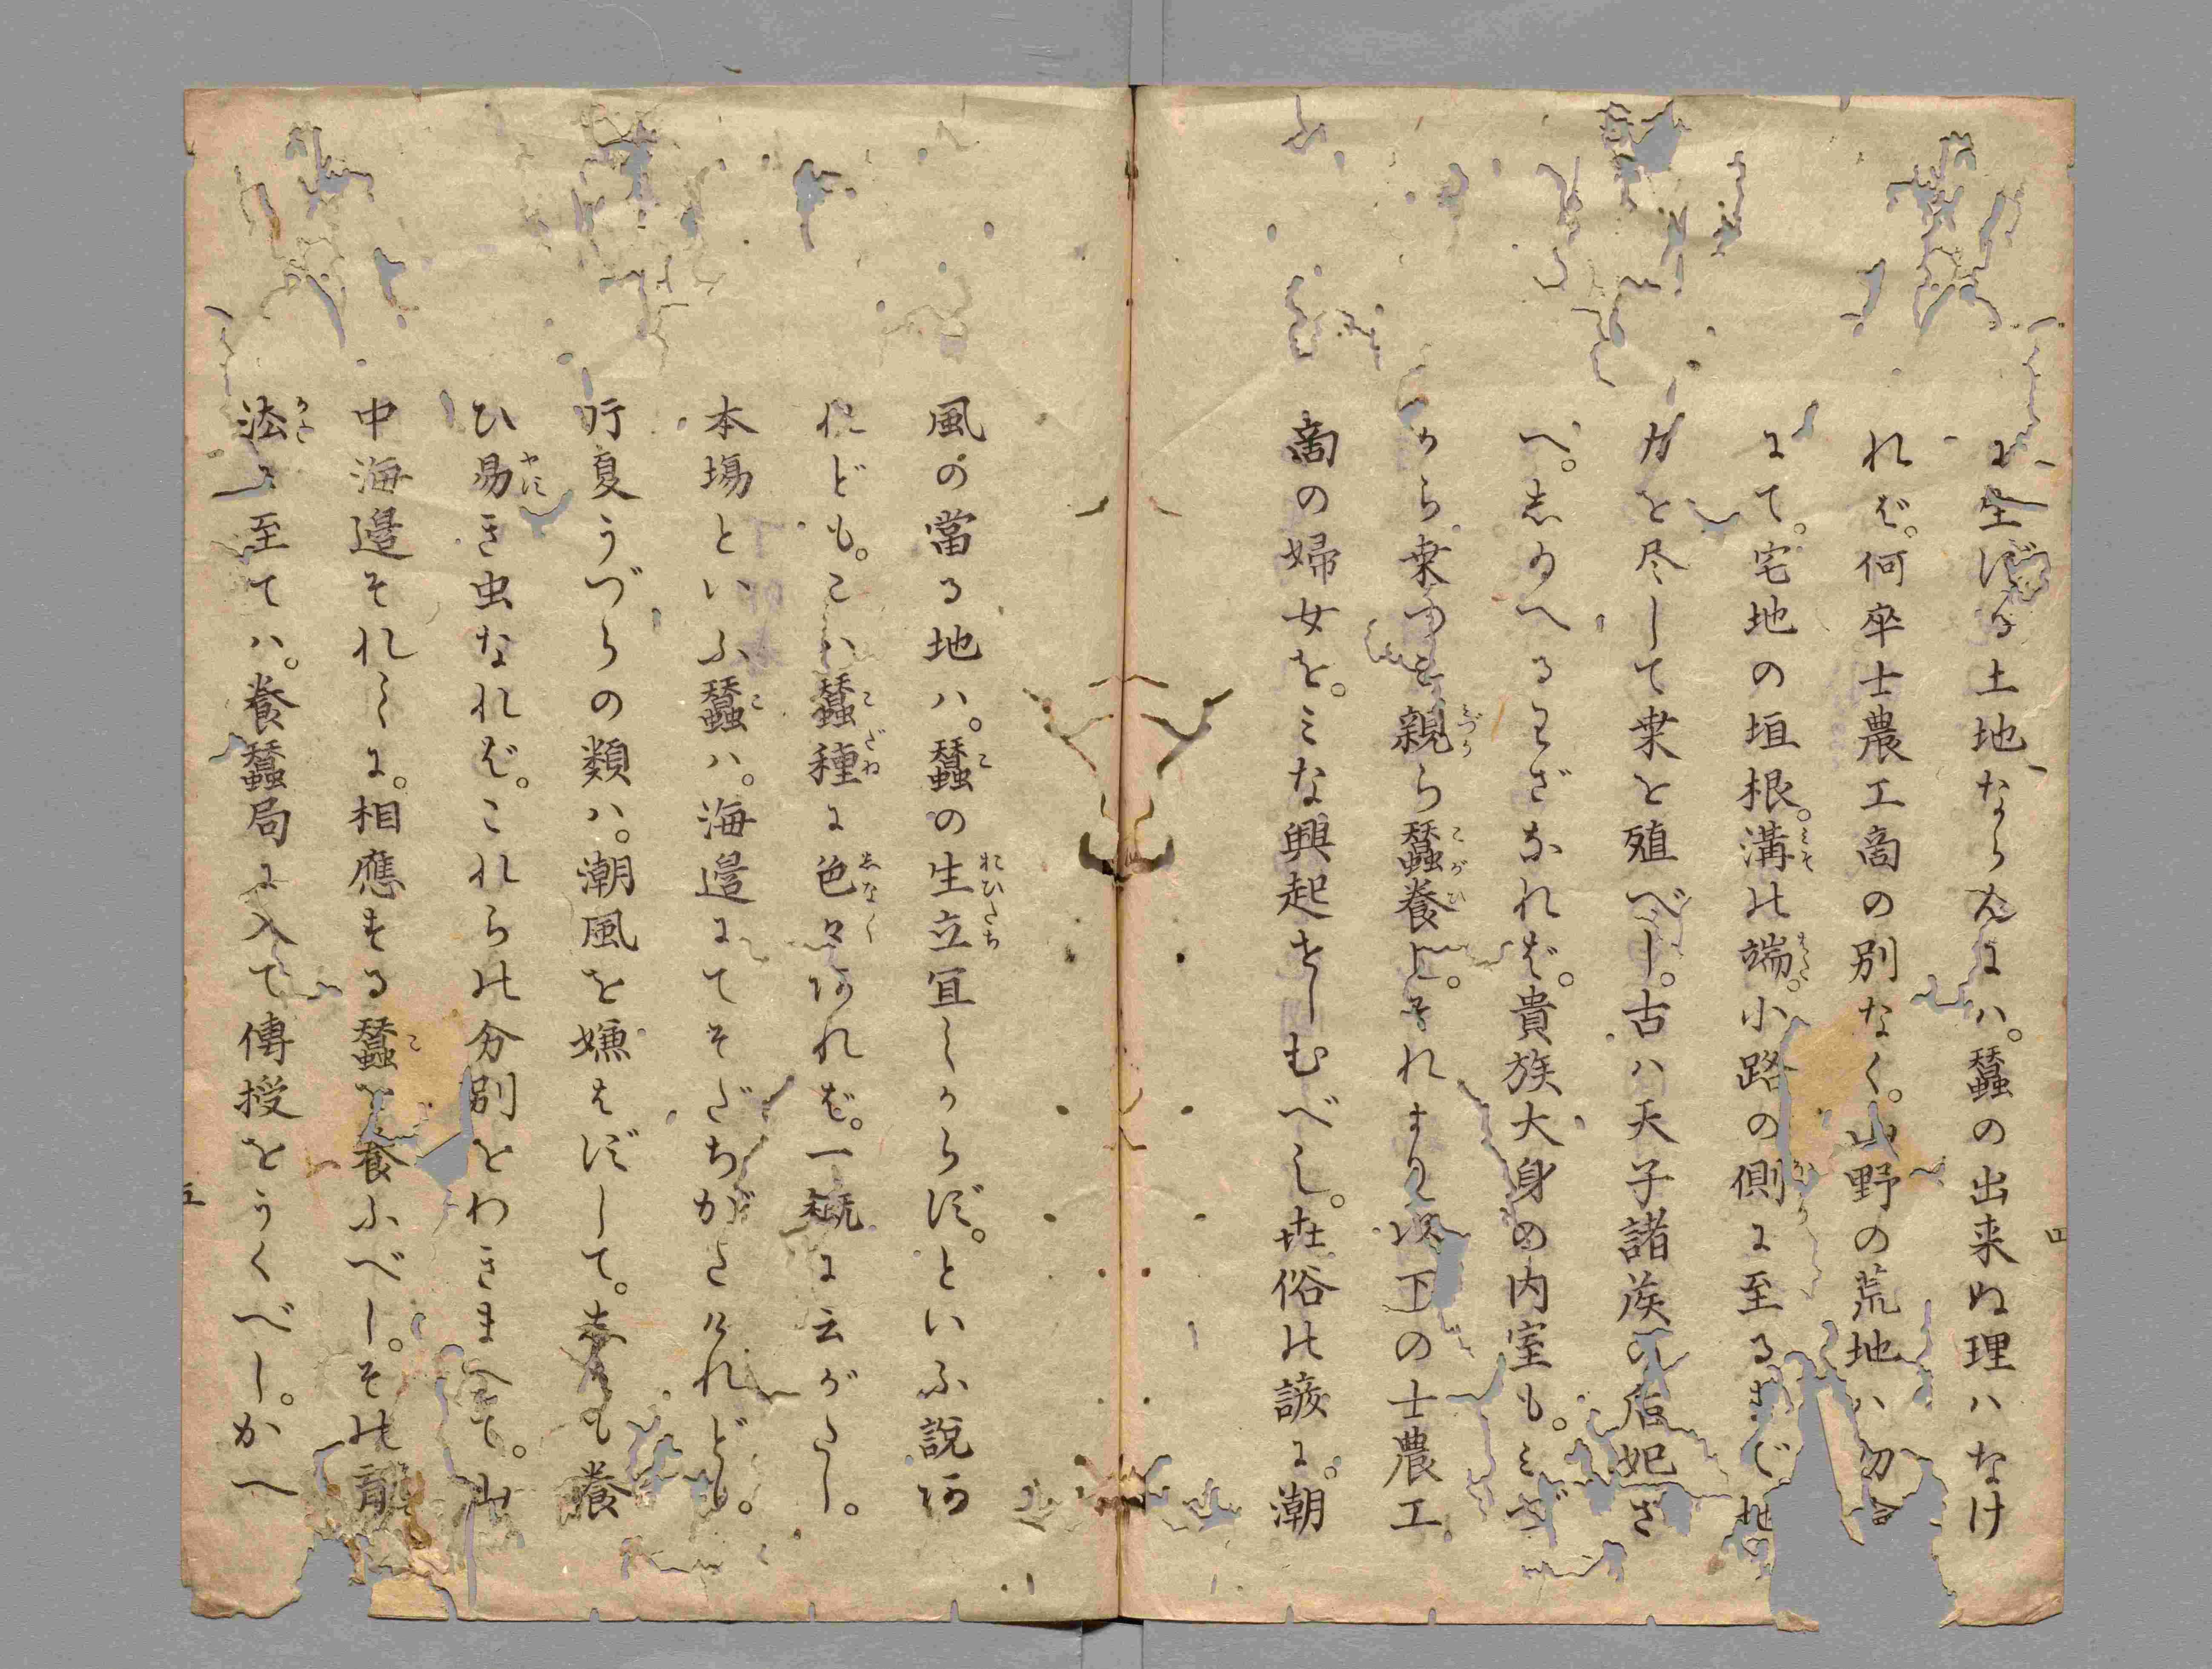 に生ずる土地ならんにハ。蠶の出来ぬ理ハなけ
れば。何卒士農工商の別なく。山野の荒地ハ勿
にて。宅地の垣根。溝の端。小路の側に至るまで地
力を尽して桒を殖べし。古ハ天子諸侯の后妃さ
へ。志ゆへるわざなれば。貴族大身の内室も。ミづ
から桒つミ親ら蠶養し。それより以下の士農工
商の婦女を。ミな興起せしむべし。世俗の諺に。潮
風の當る地ハ。蠶の生立宜しからず。といふ説あ
れども。こハ蠶種に色々あれば。一概に云がたし。
本場といふ蠶ハ。海邉にてそだちがたけれども。
所夏うづらの類ハ。潮風を嫌はずして。
ひ易き虫なれば。これらの分別をわきまへて。山
中海邉それ〳〵に。相應する蠶を養ふべし。その育
法に至てハ。養蠶局に入て傳授をうくべし。かへ
四
五